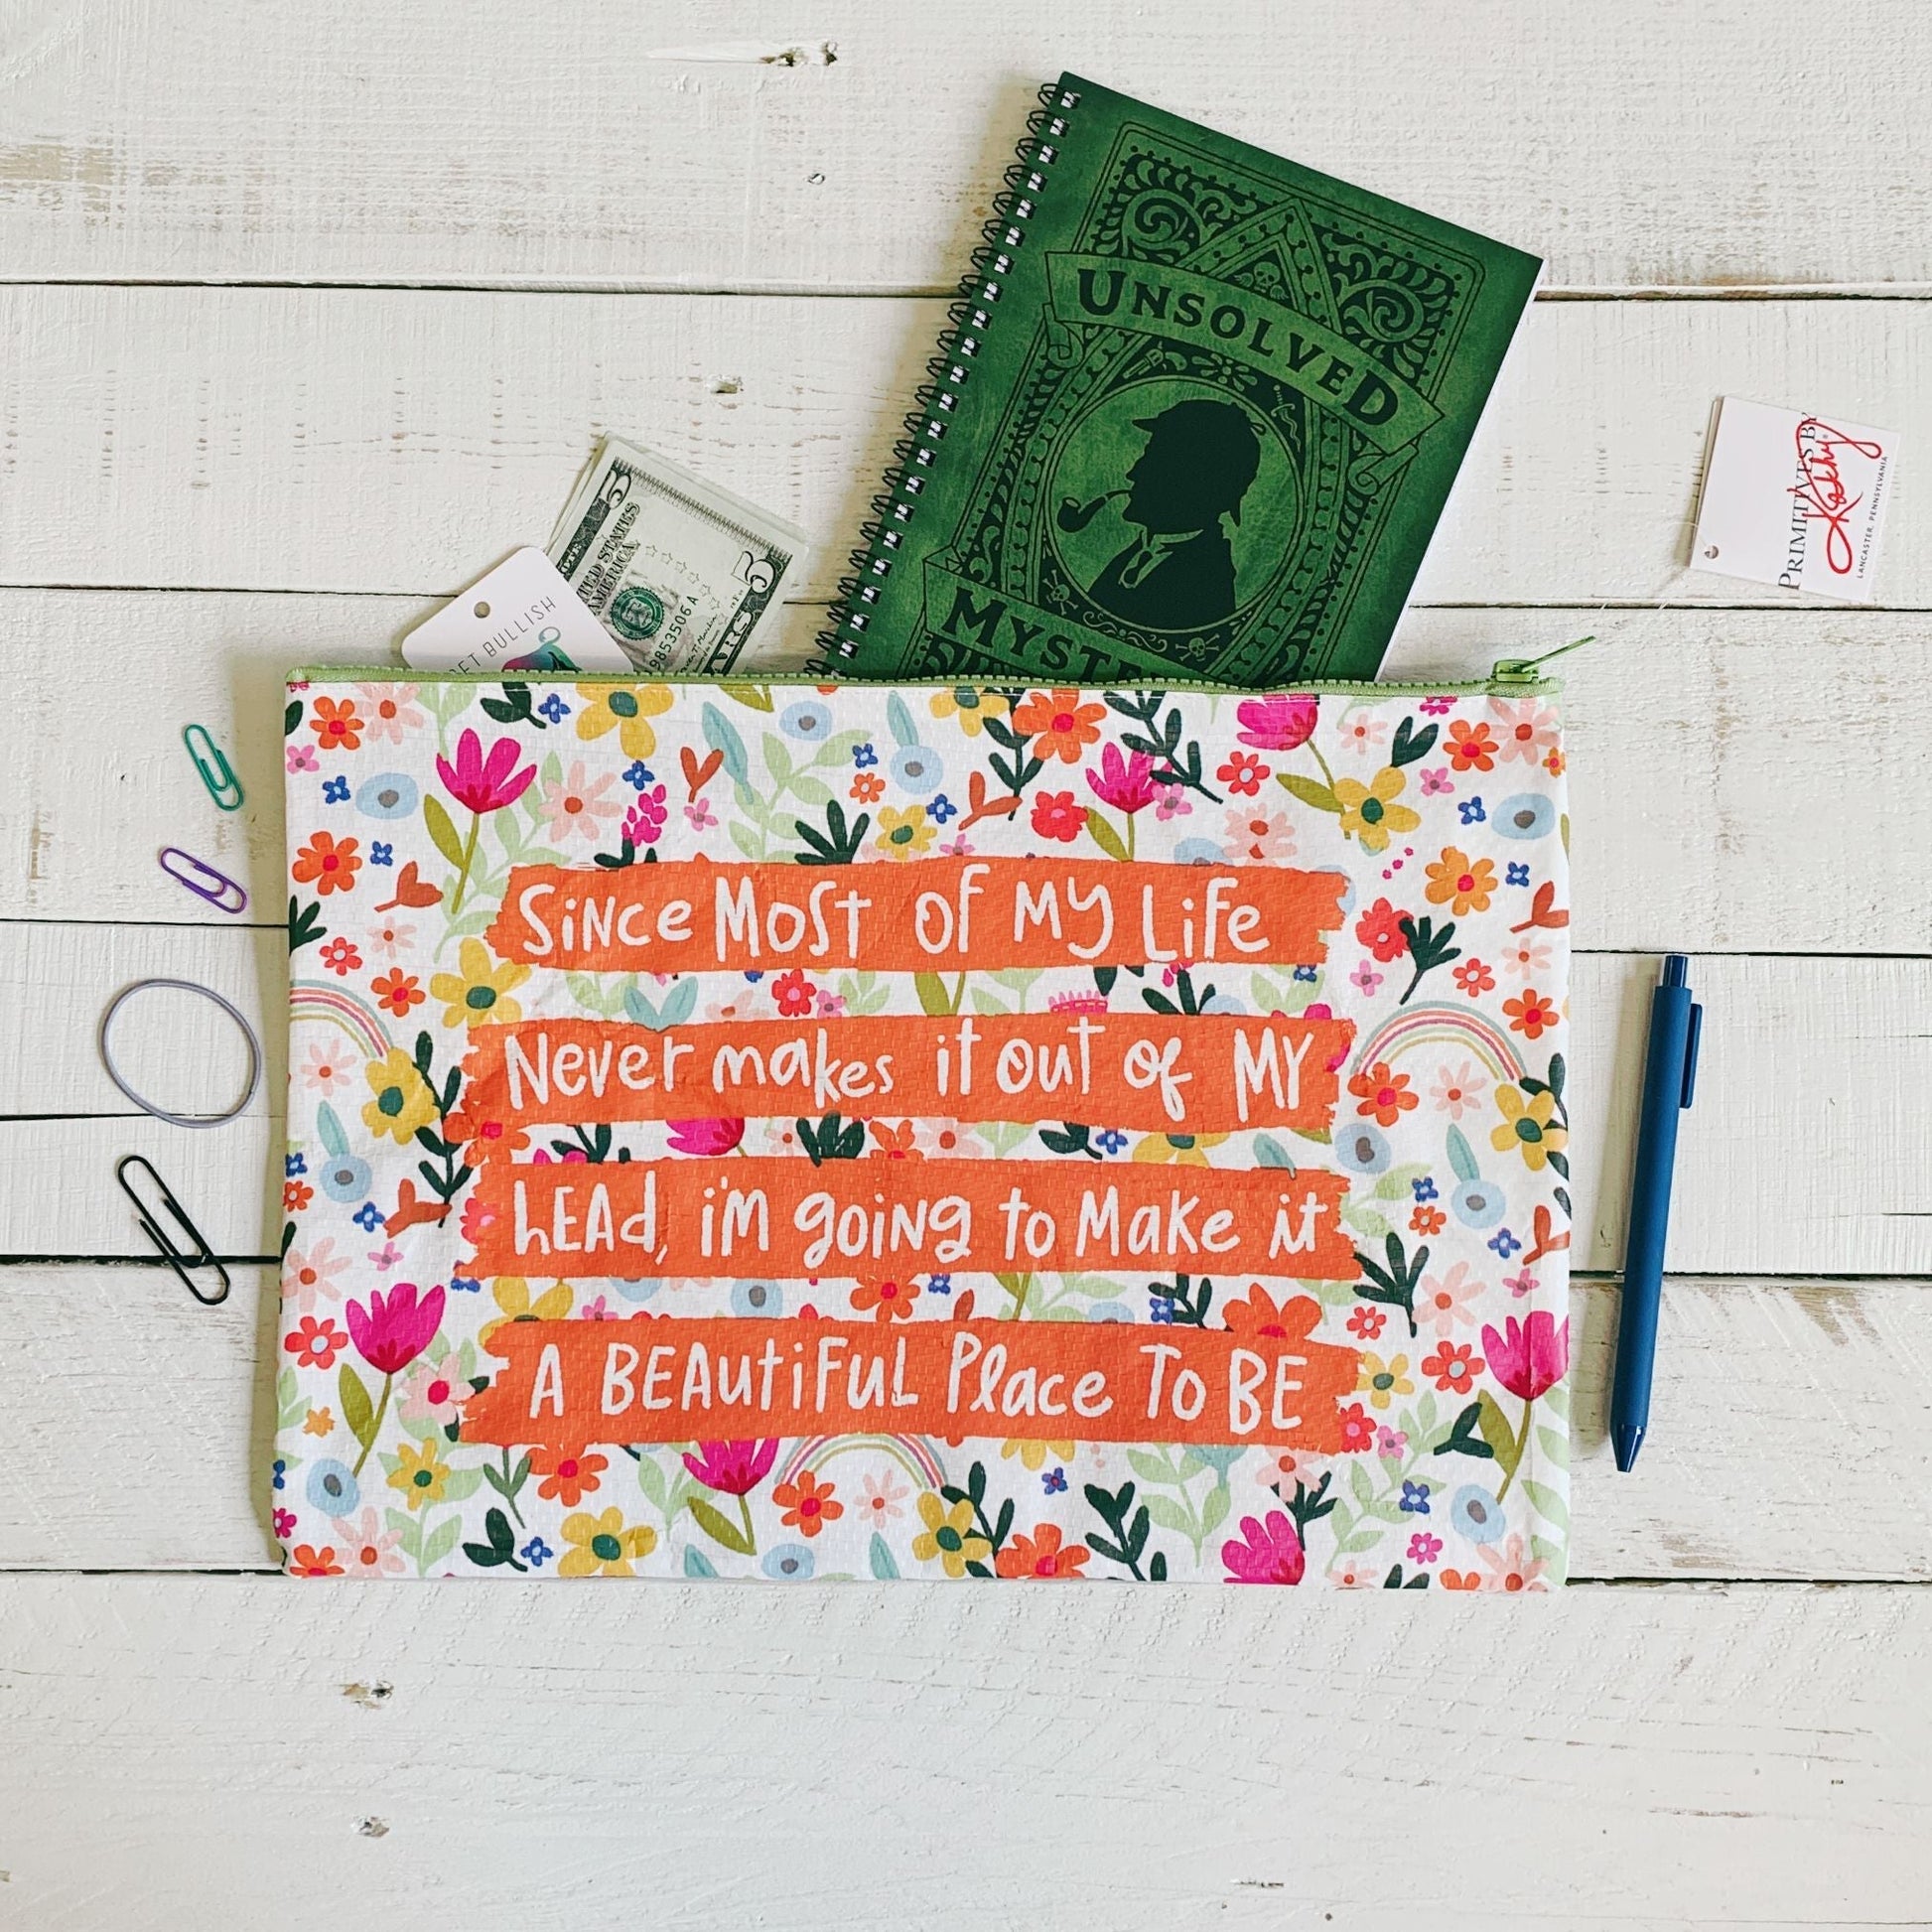 UNSOLVED
MYST
5
UNITED STATES
AMERICA
5
9853506 A
GET BULLISH
PRIMITIVES BY
Kathy
LANCASTER, PENNSYLVANIA
Since Most of My Life
Never makes it out of MY
hEAd, i'm going to Make it
A BEAUtiFUL Place To BE